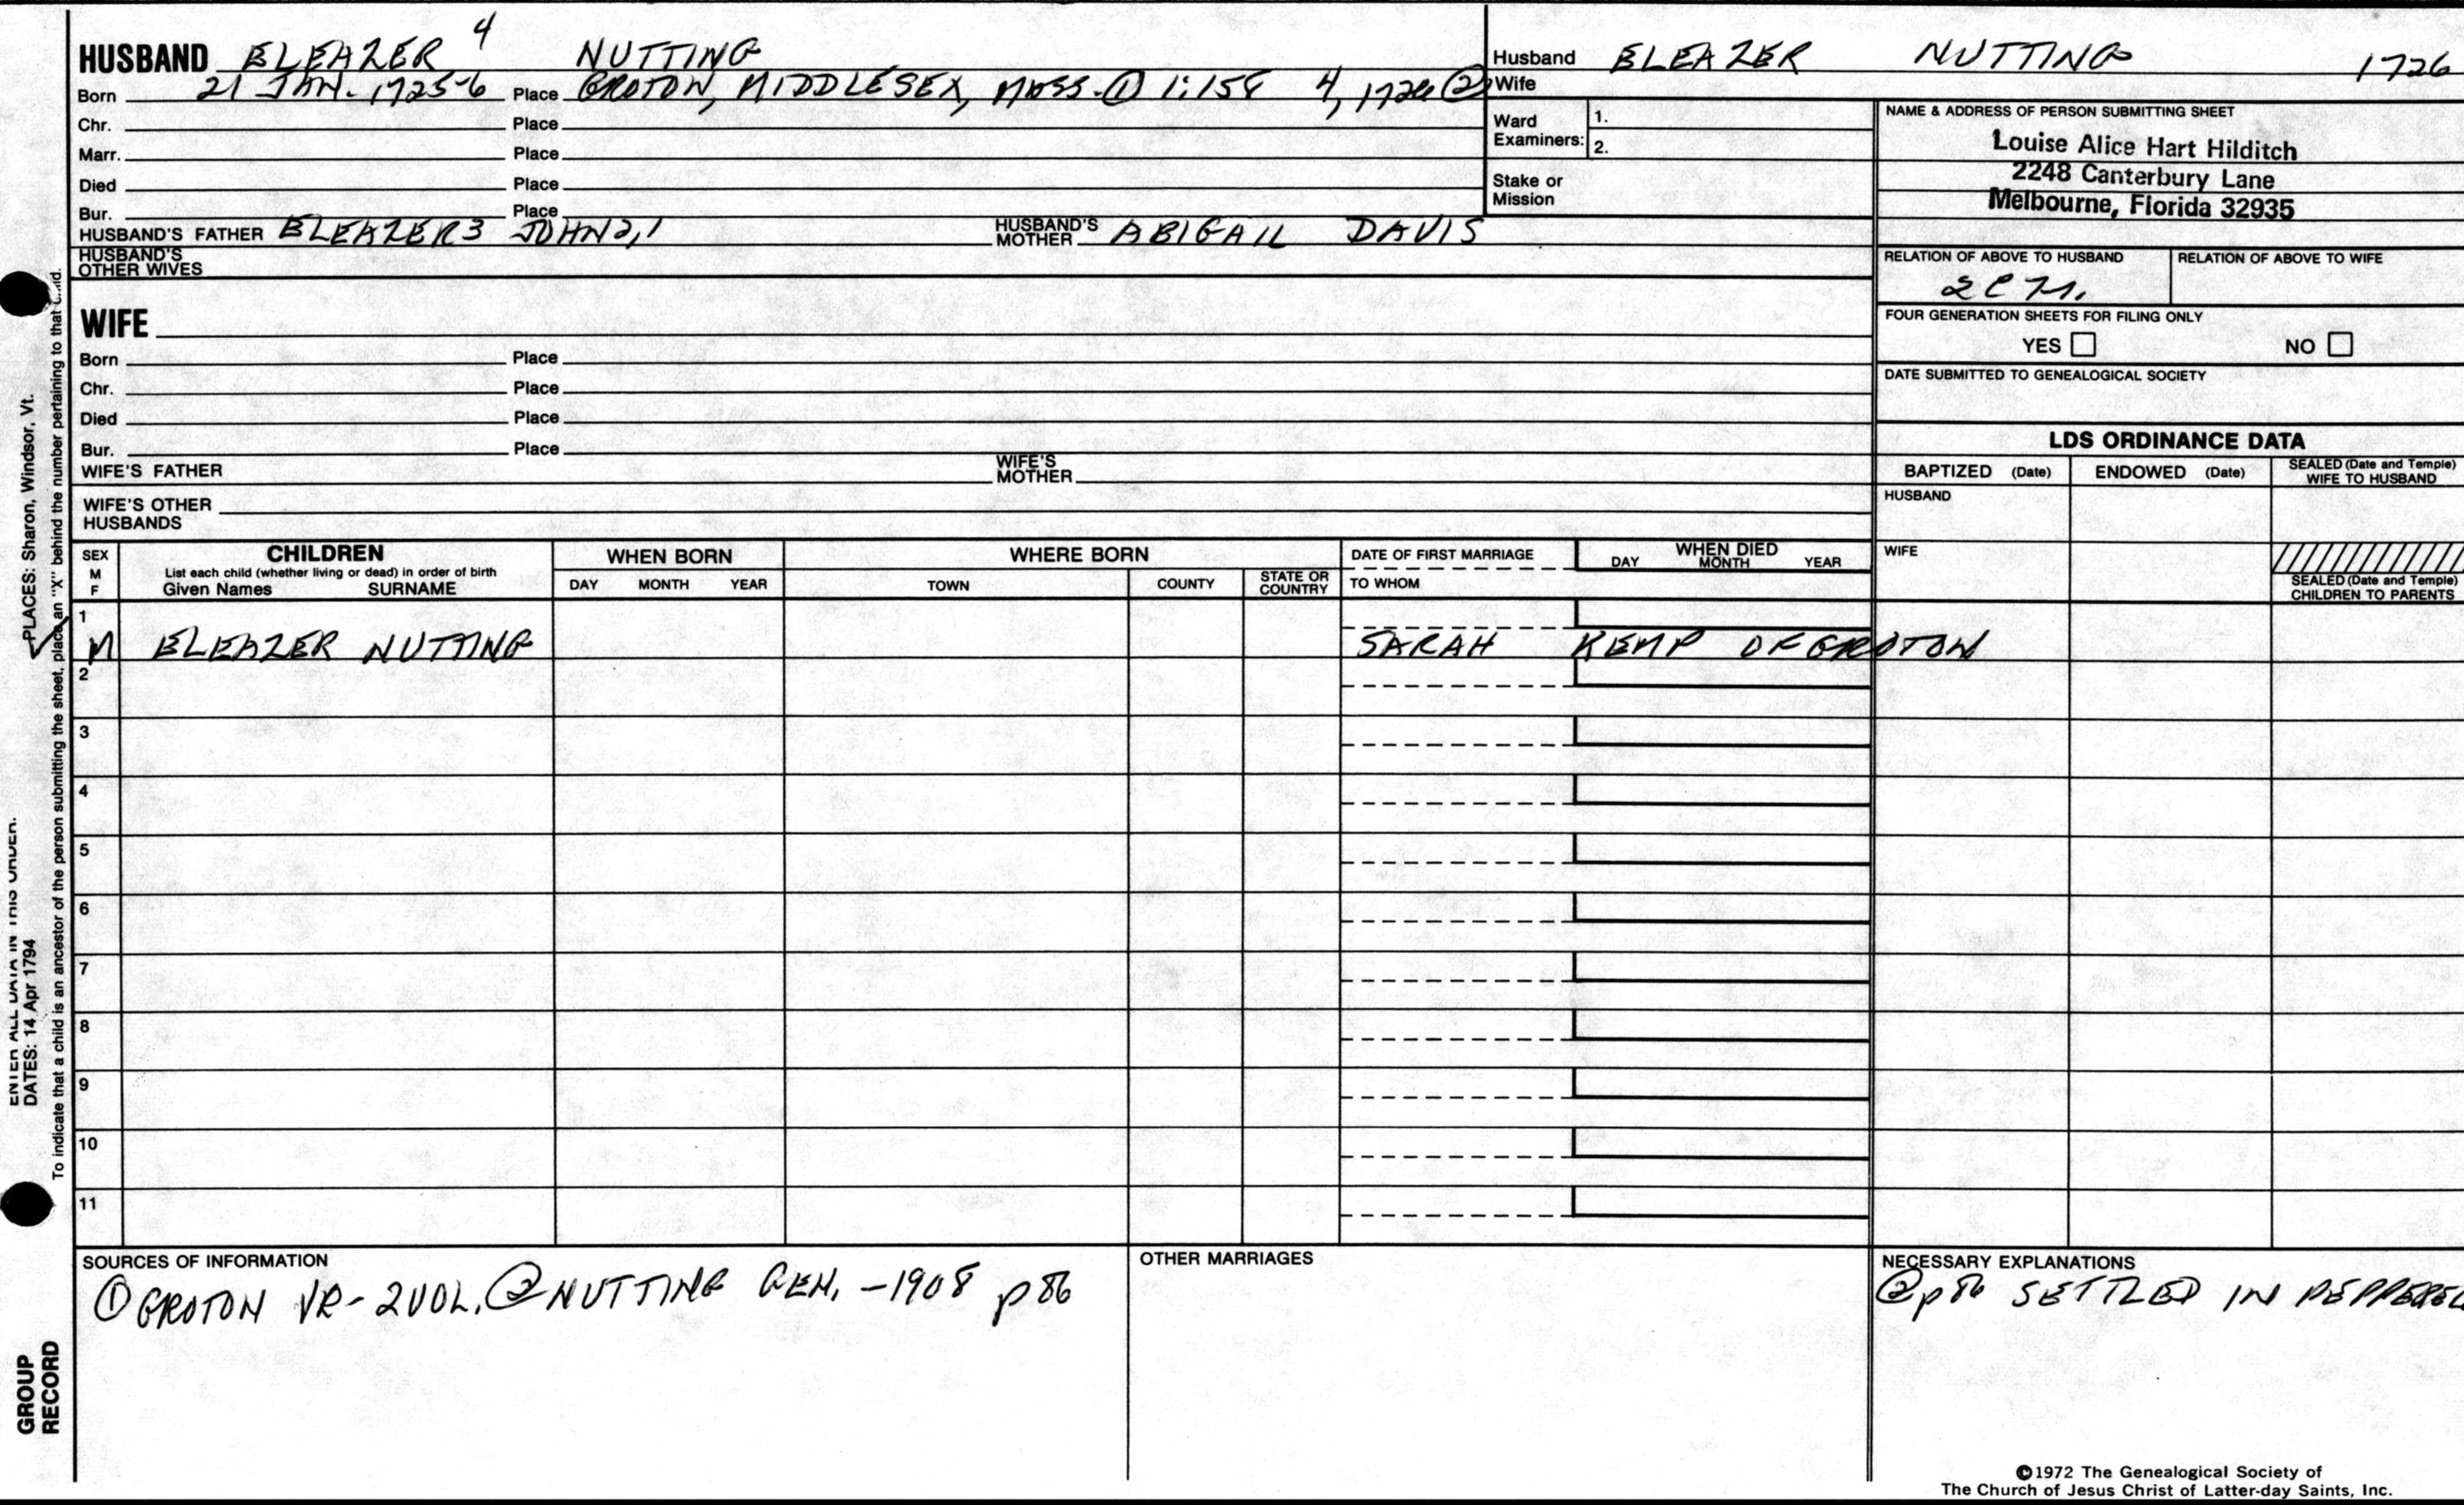 HUSBAND ELEAZER 4 NUTTING
Born 21 JAN. 1725-6 Place GROTON, MIDDLESEX, MASS. ① 1:158 4, 1726 ②
Chr. Place
Marr. Place
Died Place
Bur. Place
HUSBAND'S FATHER ELEAZER3 JOHN2,1 HUSBAND'S MOTHER ABIGAIL DAVIS
HUSBAND'S OTHER WIVES
Husband ELEAZER NUTTING 1726
Wife
Ward Examiners: 1.
2.
Stake or Mission
NAME & ADDRESS OF PERSON SUBMITTING SHEET
Louise Alice Hart Hilditch
2248 Canterbury Lane
Melbourne, Florida 32935
RELATION OF ABOVE TO HUSBAND RELATION OF ABOVE TO WIFE
FOUR GENERATION SHEETS FOR FILING ONLY
YES NO
DATE SUBMITTED TO GENEALOGICAL SOCIETY
WIFE
Born Place
Chr. Place
Died Place
Bur. Place
WIFE'S FATHER WIFE'S MOTHER
WIFE'S OTHER HUSBANDS
LDS ORDINANCE DATA
BAPTIZED (Date) ENDOWED (Date) SEALED (Date and Temple) WIFE TO HUSBAND
HUSBAND
WIFE
SEALED (Date and Temple) CHILDREN TO PARENTS
SEX M F CHILDREN WHEN BORN WHERE BORN DATE OF FIRST MARRIAGE WHEN DIED
List each child (whether living or dead) in order of birth DAY MONTH YEAR
Given Names SURNAME DAY MONTH YEAR TOWN COUNTY STATE OR COUNTRY TO WHOM
1
M ELEAZER NUTTING SARAH KEMP OF GROTON
2
3
4
5
6
7
8
9
10
11
SOURCES OF INFORMATION
① GROTON VR- 2VOL. ② NUTTING GEN. -1908 p86
OTHER MARRIAGES
NECESSARY EXPLANATIONS
② p86 SETTLED IN
©1972 The Genealogical Society of
The Church of Jesus Christ of Latter-day Saints, Inc.
PLACES: Sharon, Windsor, Vt.
ENTER ALL DATA IN THIS ORDER.
DATES: 14 Apr 1794
To indicate that a child is an ancestor of the person submitting the sheet, place an "X" behind the number pertaining to that child.
GROUP
RECORD